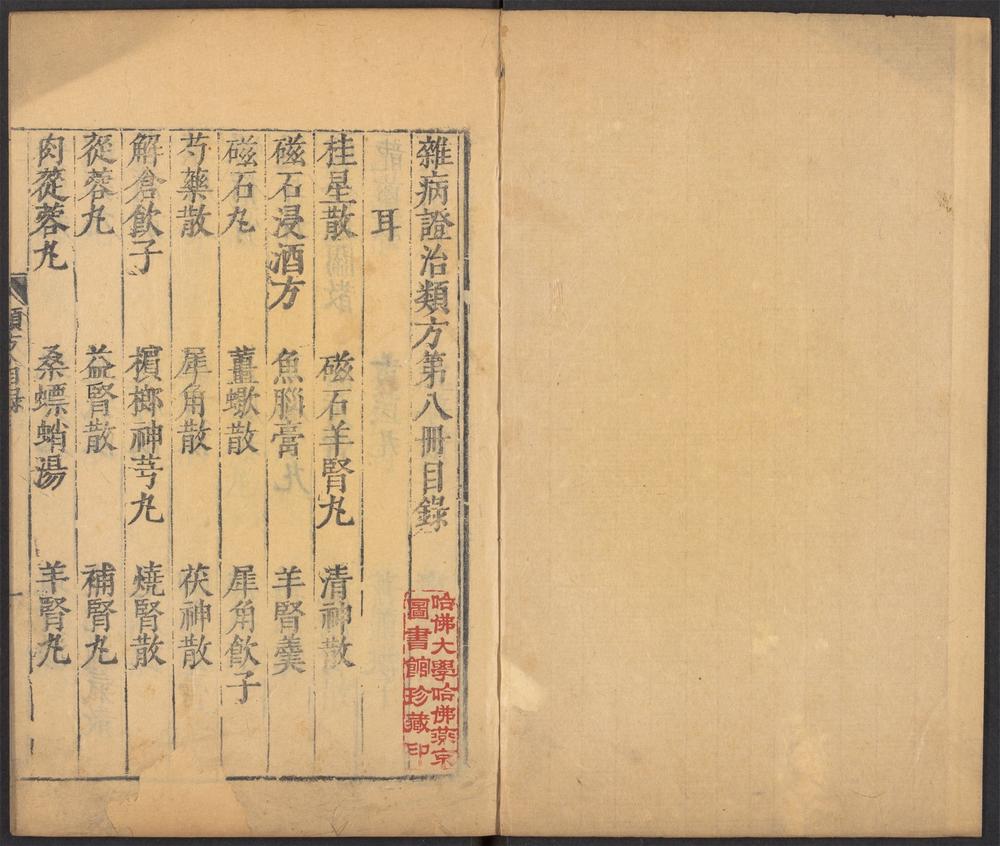 雜病證治類方第八冊目錄
哈佛大學哈佛燕京
圖書館珍藏印
耳
桂星散　磁石羊腎丸　清神散
磁石浸酒方　魚腦膏　羊腎羹
磁石丸　薑蠍散　犀角飲子
芍藥散　犀角散　茯神散
解倉飲子　檳榔神芎丸　燒腎散
蓯蓉丸　益腎散　補腎丸
肉蓯蓉丸　桑螵蛸湯　羊腎丸